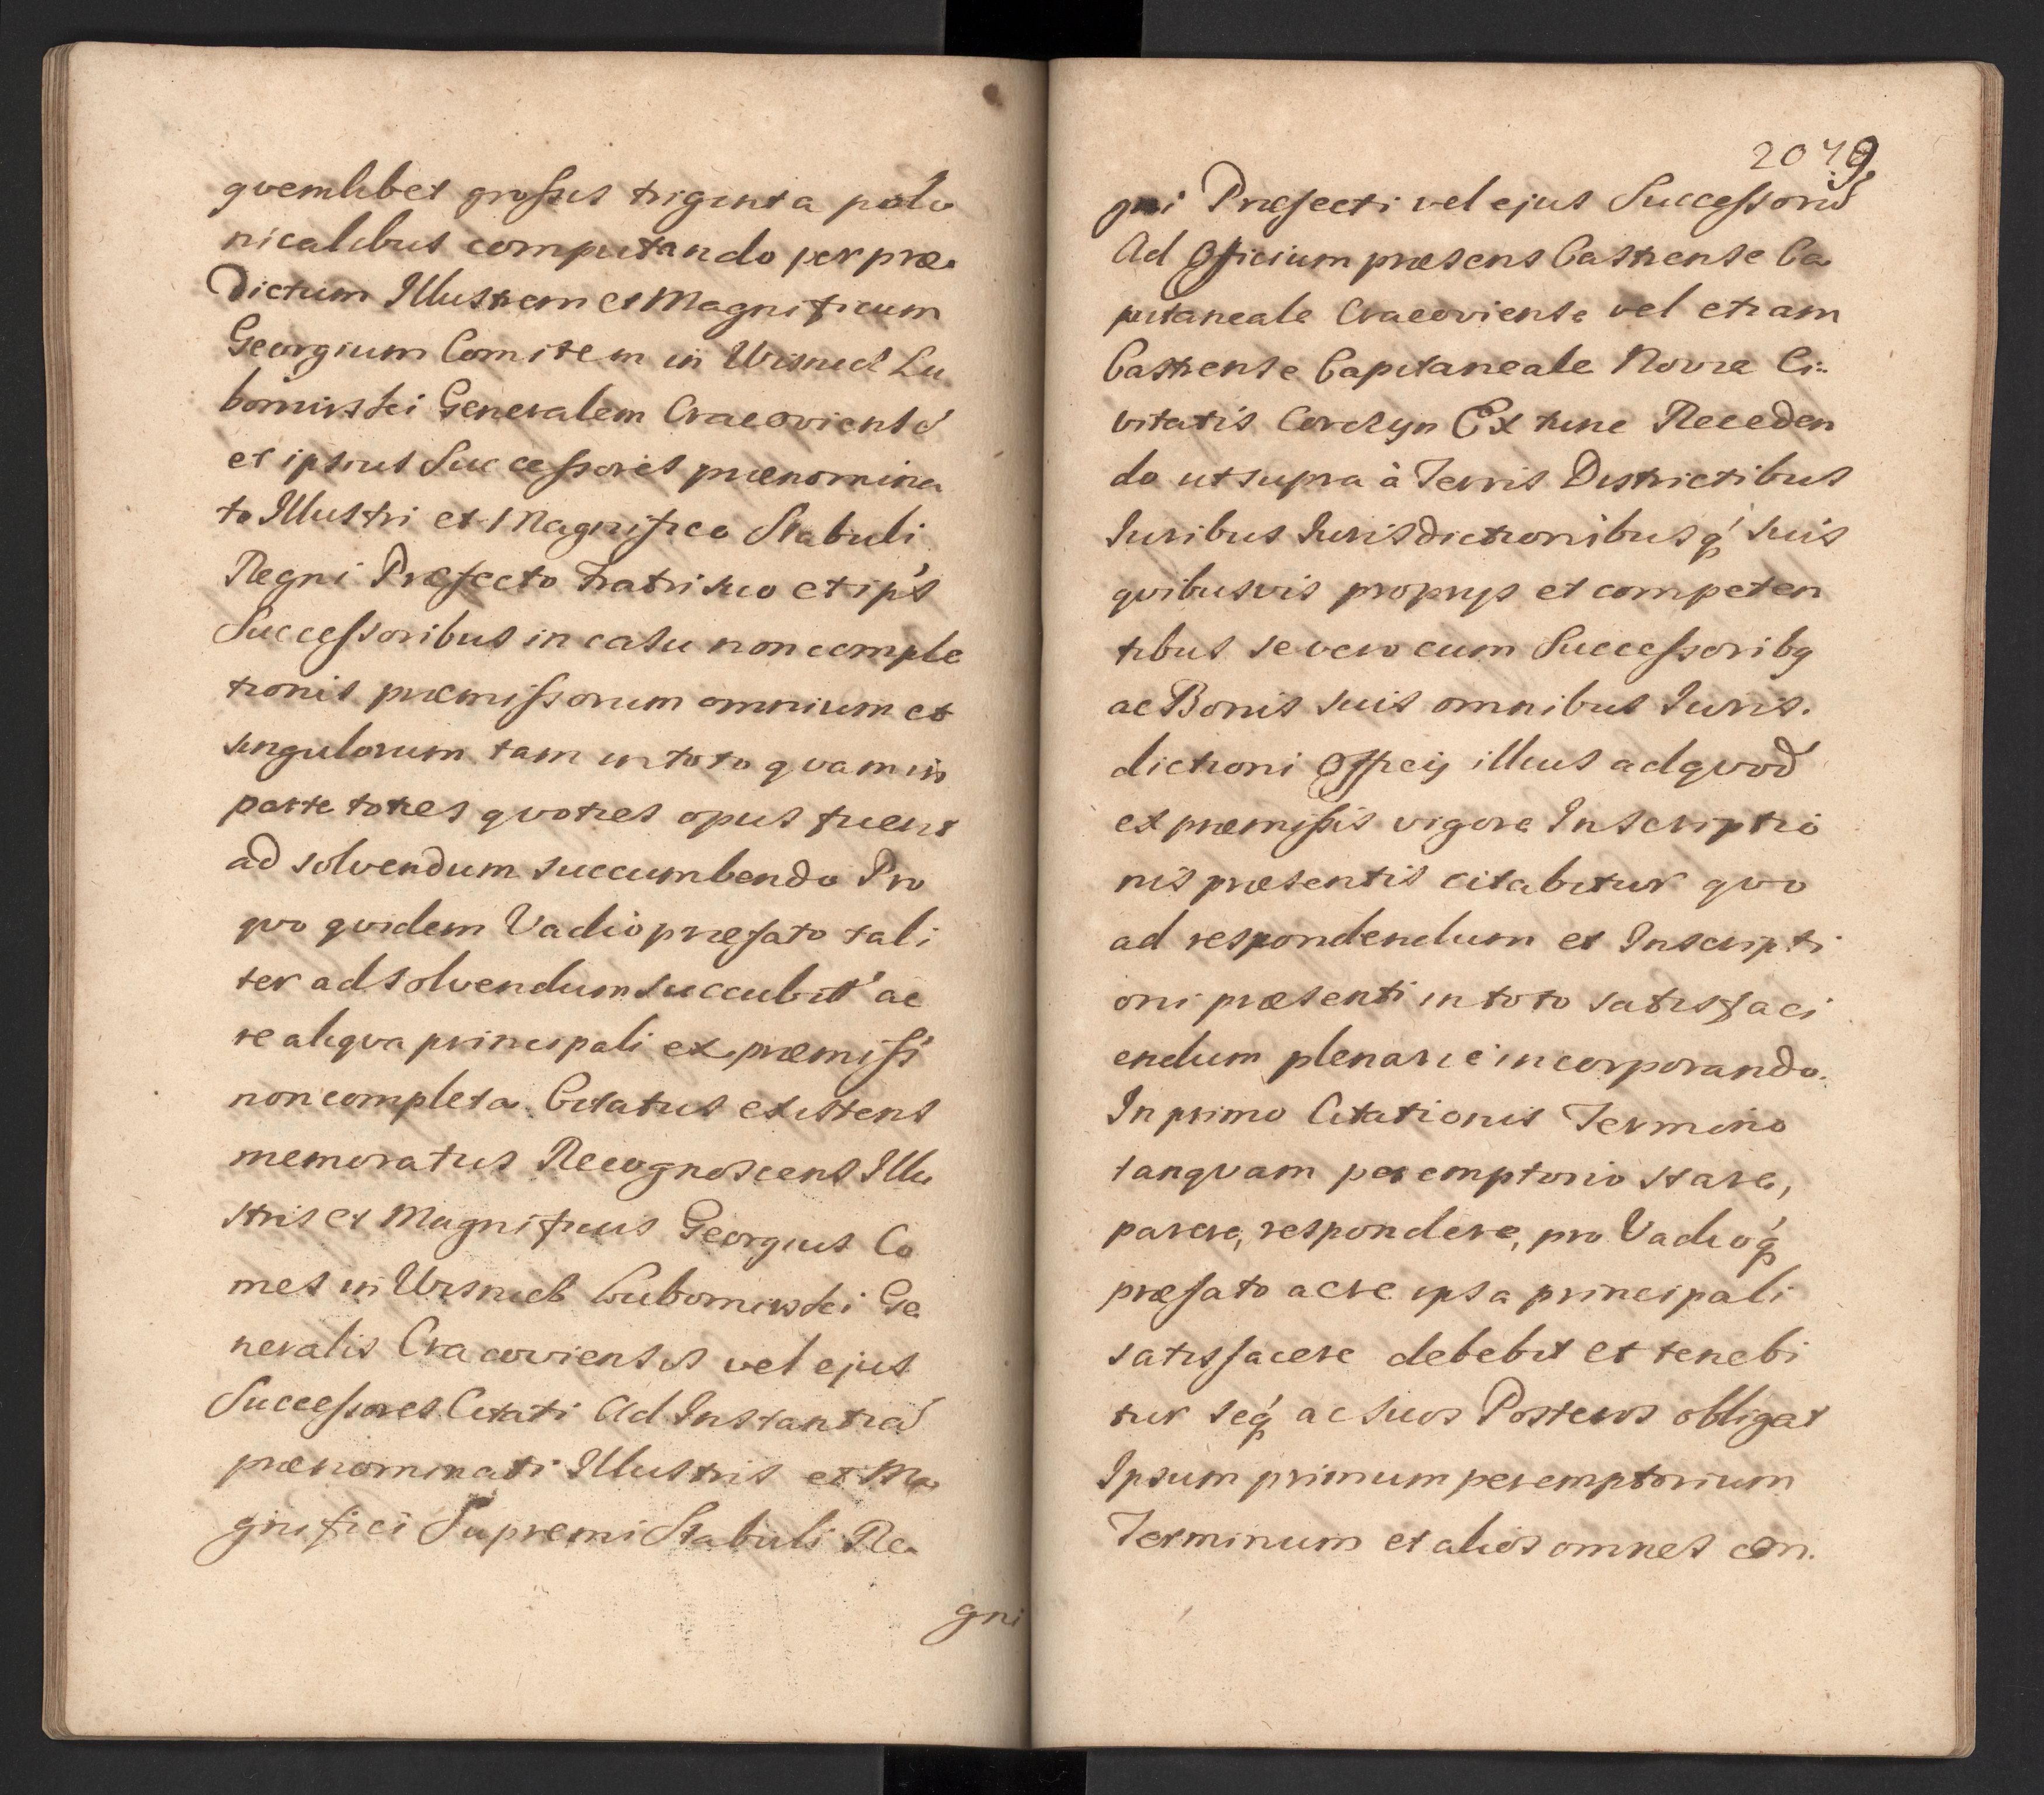 qvemlibet grossis triginta polo
nicalibus computando per præ.
dictum Illustrem et Magnificum
Georgium Comitem in Wisnicz Lu
bomirski Generalem Cracoviensẽ
et ipsius Successores prænomina
to Illustri et Magnifico Stabuli
Regni Præfecto Fratri suo et ips
Successoribus in casu non comple
tionis præmissorum omnium et
singulorum tam in toto qvam in
parte toties qvoties opus fuerit
ad solvendum succumbendo Pro
qvo qvidem Vadio præfato tali
ter ad solvendum succubit ac
re aliqva principali ex præmissis
non completa. Citatus existens
memoratus Recognoscens Illu
stris et Magnificus Georgius Co
mes in Wisnicz Lubomirski Ge
neralis Cracoviensis vel ejus
Successores Citati Ad Instantiã
prænominati Illustris et Ma
gnifici Supremi Stabuli Re.
gni
2079
gni Præfecti vel ejus Successorũ
Ad Officium præsens Castrense Ca
pitaneale Cracoviense vel etiam
Castrense Capitaneale Novæ Ci:
vitatis Corczyn Ex tunc Receden
do ut supra à Terris Districtibus
Iuribus Iurisdictionibusq́ suis
qvibusvis propriis et competen
tibus se vero cum Successoribq
ac Bonis suis omnibus Iuris.
dictioni Officij illius ad qvod
ex præmissis vigore Inscriptio
nis præsentis citabitur qvo
ad respondendum et Inscripti
oni præsenti in toto satisfaci
endum plenarie incorporando.
In primo Citationis Termino
tanqvam peremptorio stare,
parere, respondere, pro Vadioq́
præfato ac re ipsa principali
satisfacere debebit et tenebi
tur seq́ ac suos Posteros obligat
Ipsum primum peremptorium
Terminum et alios omnes con.